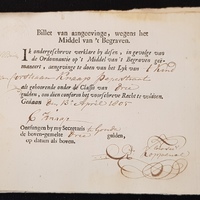 Billet van aangeevinge, wegens het
Middel van 't Begraven.
Ik ondergeschreven verklare by desen, in gevolge van
de Ordonnantie op 't Middel van 't Begraven geë-
maneert, aangevinge te doen van het Lyk van 't Kind
van Knaap
als gehoorende onder de Classe van drie
gulden, om dien conform het voorschreve Recht te voldoen.
Gedaan den 15e April 1805
C Knaap
Ontfangen by my Secretaris te Gouda
de boven-gemelte drie gulden,
op datum als boven.